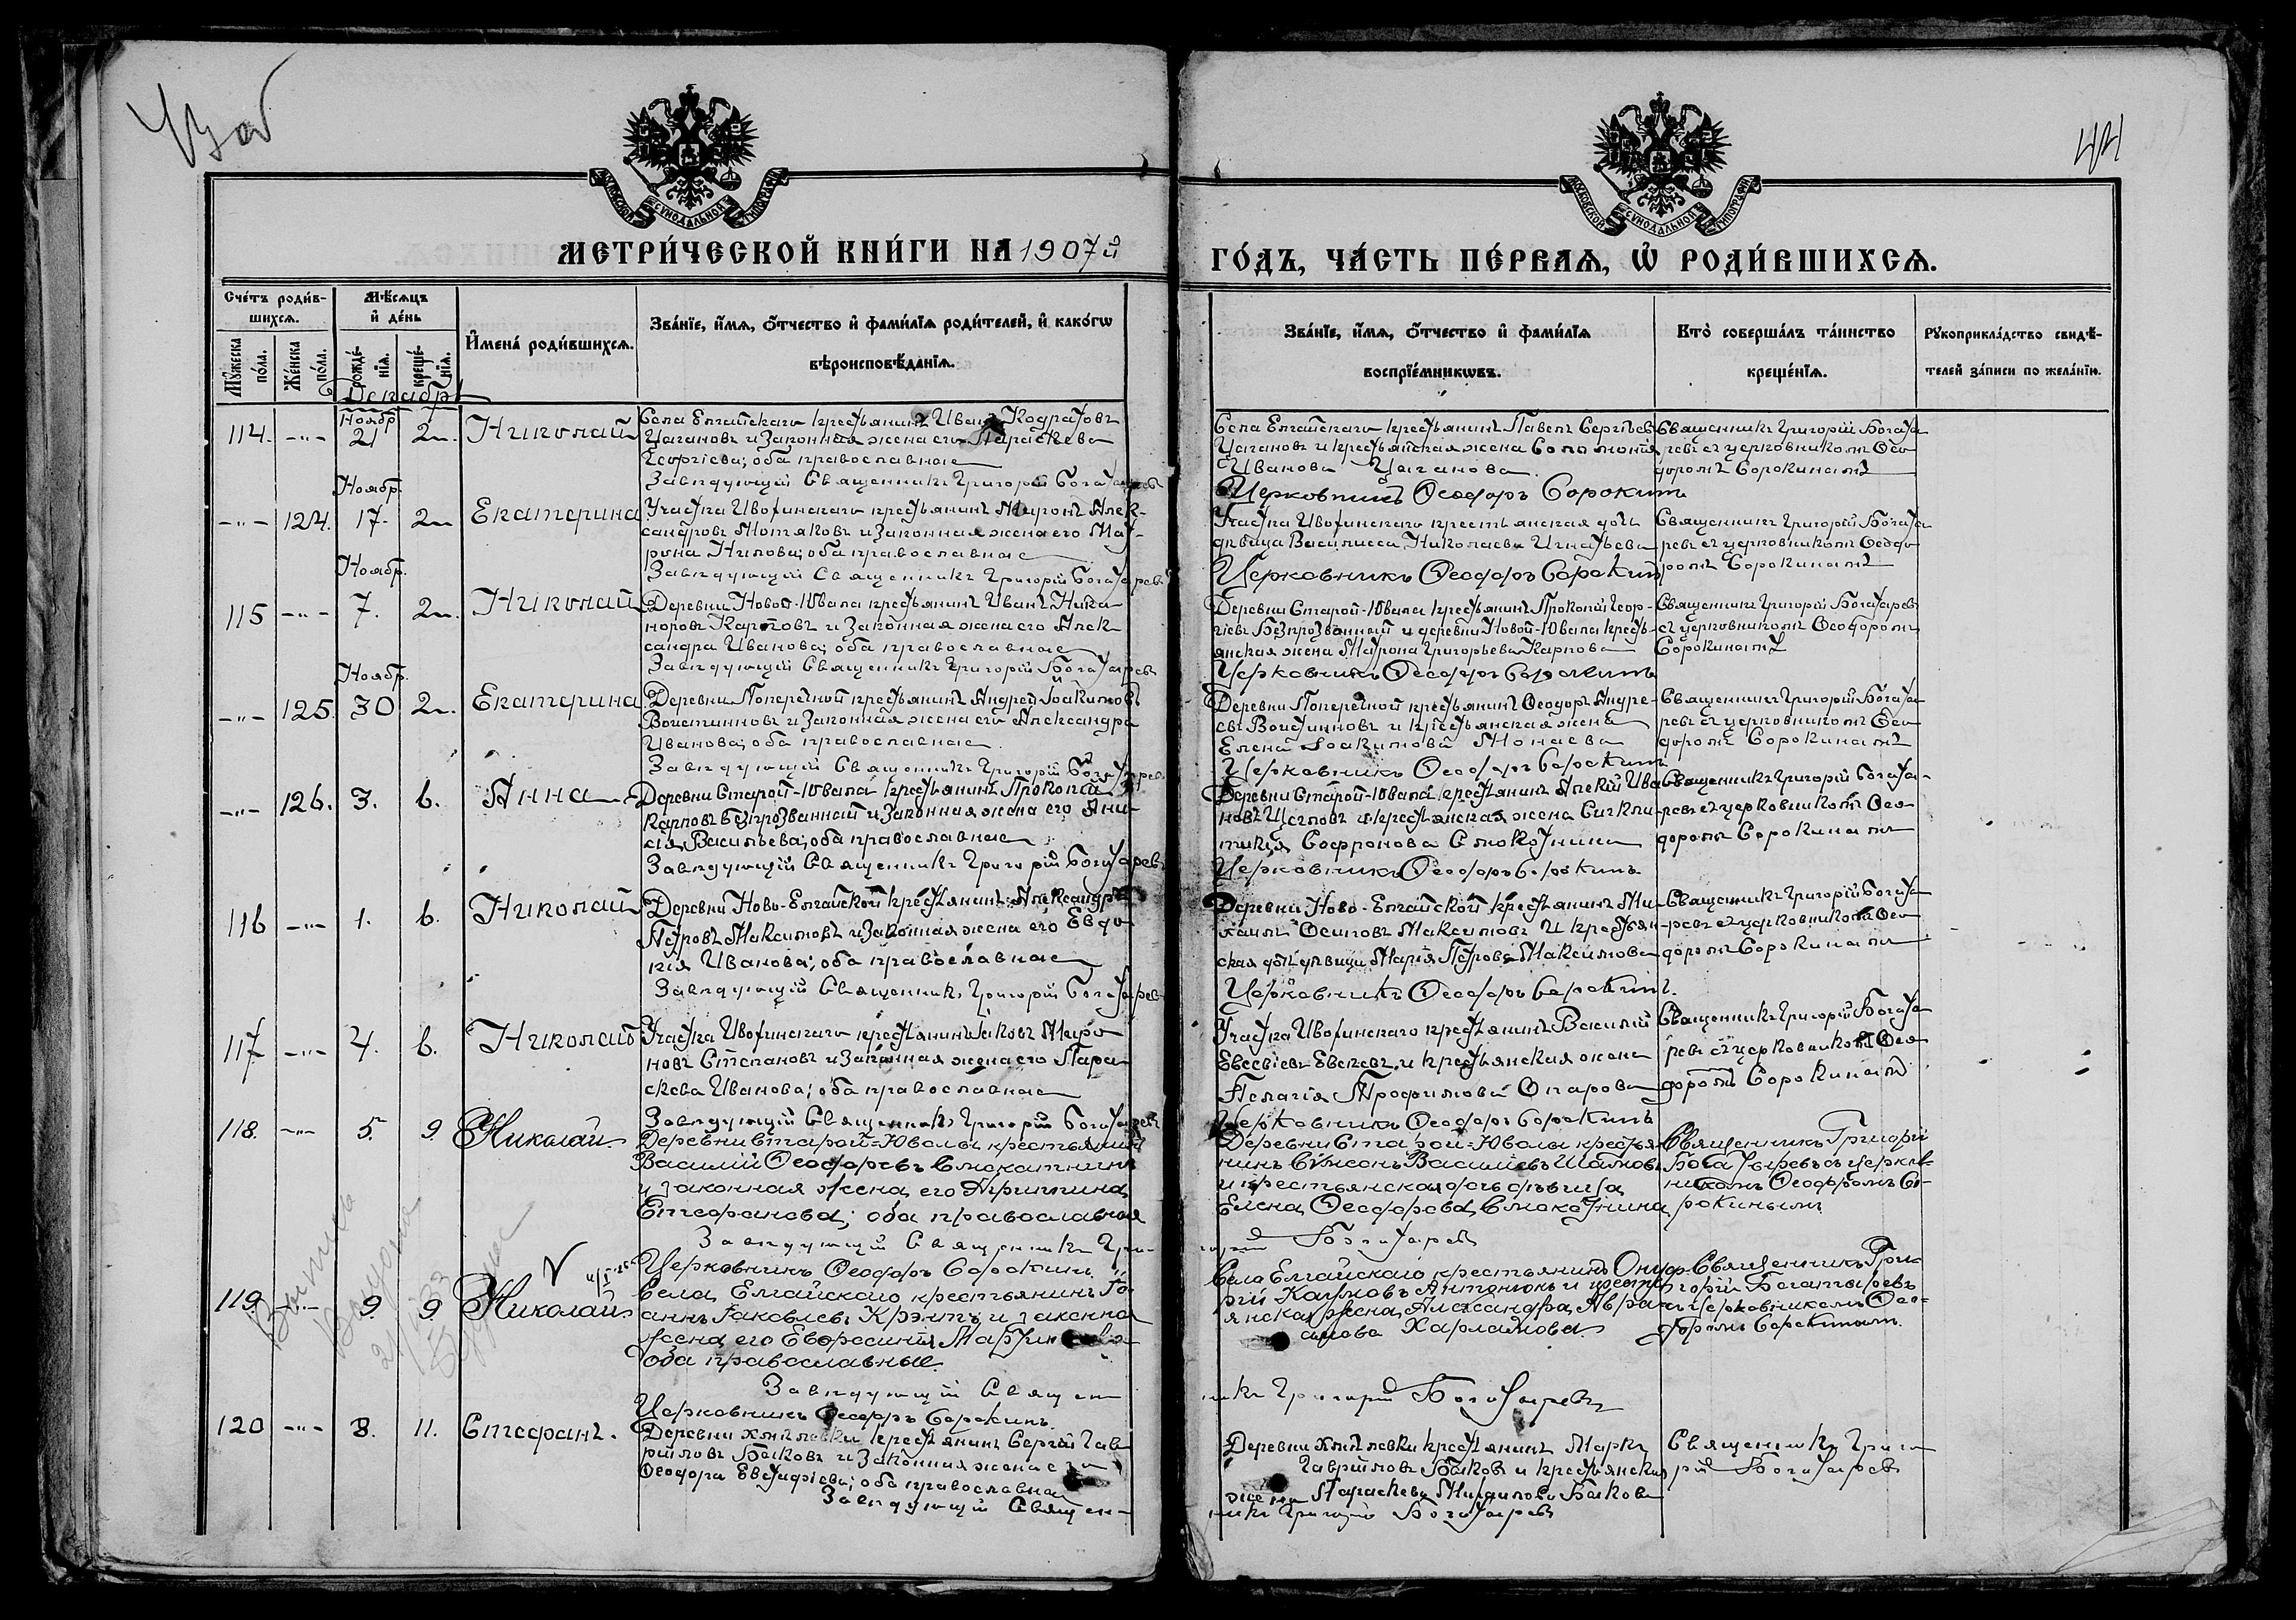 44
МОСКОВСКОЙ СѴНОДАЛЬНОЙ ТИПОГРАФІИ
МОСКОВСКОЙ СѴНОДАЛЬНОЙ ТИПОГРАФІИ
МЕТРИ́ЧЕСКОЙ КНИ́ГИ НА 1907й
ГО́ДЪ, ЧА́СТЬ ПЕ́РВАѦ, Ѡ҆ РОДИ́ВШИХСѦ.
Сче́тъ роди́в-
шихсѧ.
Мꙋ́жеска по́ла.
Же́нска по́ла.
Мѣ́сѧцъ и҆ де́нь
рожде́-нїѧ.
креще́-нїѧ.
И҆мена̀ роди́вшихсѧ.
Зва́нїе, и҆́мѧ, ѻ҆́тчество и҆ фами́лїѧ роди́телей, и҆ како́гѡ
вѣроисповѣ́данїѧ.
Зва́нїе, и҆́мѧ, ѻ҆́тчество и҆ фами́лїѧ
воспрїе́мникѡвъ.
Кто̀ соверша́лъ та́инство
креще́нїѧ.
Рꙋкоприкла́дство свидѣ́-
телей за́писи по жела́нїю.
Декабрь
114. -"- Ноябр. 21 2. Николай
Села Елгайскаго крестьянинъ Иванъ Кодратовъ
Цыгановъ и законная жена его Параскева
Георгіева; оба православные
Завѣдующій Священникъ Григорій Богатыревъ
Села Елгайскаго крестьянинъ Павелъ Сергѣевъ
Цыгановъ и крестьянская жена Соломонія
Иванова Цыганова
Церковникъ Ѳеодоръ Сорокинъ
Священникъ Григорій Богаты-
ревъ съ церковникомъ Ѳео-
доромъ Сорокинымъ
-"- 124. Ноябр. 17. 2. Екатерина
Участка Ивотинскаго крестьянинъ Миронъ Алек-
сандровъ Мотяковъ и законная жена его Мат-
рона Нилова; оба православные
Завѣдующій Священникъ Григорій Богатыревъ
Участка Ивотинскаго крестьянская дочь
дѣвица Василисса Николаева Игнатьева
Церковникъ Ѳеодоръ Сорокинъ
Священникъ Григорій Богаты-
ревъ съ церковникомъ Ѳеодо-
ромъ Сорокинымъ
115 -"- Ноябр. 7. 2. Николай
Деревни Новой-Ювала крестьянинъ Иванъ Ника-
норовъ Карповъ и законная жена его Алек-
сандра Иванова; оба православные
Завѣдующій Священникъ Григорій Богатыревъ
Деревни Старой-Ювала крестьянинъ Прокопій Геор-
гіевъ Безпрозванный и деревни Новой-Ювала кресть-
янская жена Матрона Григорьева Карпова
Церковникъ Ѳеодоръ Сорокинъ
Священникъ Григорій Богатыревъ
съ церковникомъ Ѳеодоромъ
Сорокинымъ
-"- 125. Ноябр. 30 2. Екатерина
Деревни Поперечной крестьянинъ Андрей Іоакимовъ
Воистиновъ и законная жена его Александра
Иванова; оба православные.
Завѣдующій Священникъ Григорій Богатыревъ
Деревни Поперечной крестьянинъ Ѳеодоръ Андре-
евъ Воистиновъ и крестьянская жена
Елена Іоакимова Монаева
Церковникъ Ѳеодоръ Сорокинъ
Священникъ Григорій Богаты-
ревъ съ церковникомъ Ѳео-
доромъ Сорокинымъ
-"- 126. 3. 6. Анна
Деревни Старой-Ювала крестьянинъ Прокопій
Карповъ Безпрозванный и законная жена его Ани-
сія Васильева; оба православные
Завѣдующій Священникъ Григорій Богатыревъ
Деревни Старой-Ювала крестьянинъ Алексій Ива-
новъ и крестьянская жена
Софронова Смокотнина
Церковникъ Ѳеодоръ Сорокинъ
Священникъ Григорій Богаты-
ревъ съ церковникомъ Ѳео-
доромъ Сорокинымъ
116 -"- 1. 6. Николай
Деревни Ново-Елгайской крестьянинъ Александръ
Петровъ Максимовъ и законная жена его Евдо-
кія Иванова; оба православные
Завѣдующій Священникъ Григорій Богатыревъ
Деревни Ново-Елгайской крестьянинъ Ми-
хаилъ Осиповъ Максимовъ и крестьян-
ская дочь дѣвица Марія Петрова Максимова
Церковникъ Ѳеодоръ Сорокинъ.
Священникъ Григорій Богаты-
ревъ съ церковникомъ Ѳео-
доромъ Сорокинымъ
117 -"- 4. 6. Николай
Участка Ивотинскаго крестьянинъ Іаковъ Миро-
новъ Степановъ и законная жена его Пара-
скева Иванова; оба православные
Завѣдующій Священникъ Григорій Богатыревъ
Участка Ивотинскаго крестьянинъ Василій
Евсевіевъ и крестьянская жена
Пелагія Трофимова Опарова
Церковникъ Ѳеодоръ Сорокинъ
Священникъ Григорій Богаты-
ревъ съ церковникомъ Ѳео-
доромъ Сорокинымъ
118. -"- 5. 9. Николай
Деревни Старой=Ювалы крестьянинъ
Василій Ѳеодоровъ Смокотнинъ
и законная жена его Агриппина
Стефанова; оба православные
Завѣдующій Священникъ Гри-
горій Богатыревъ
Церковникъ Ѳеодоръ Сорокинъ
Деревни Старой=Ювалы крестья-
нинъ Сѵмеонъ Василіевъ
и крестьянская дочь дѣвица
Елена Ѳеодорова Смокотнина
Священникъ Григорій
Богатыревъ съ церков-
никомъ Ѳеодоромъ Со-
рокинымъ
119 -"- 9. 9 Николай
Села Елгайскаго крестьянинъ Іо-
аннъ Іаковлевъ и законная
жена его Евфросинія
оба православные
Завѣдующій Священ-
никъ Григорій Богатыревъ
Церковникъ Ѳеодоръ Сорокинъ
Села Елгайскаго крестьянинъ Онуф-
рій Антоновъ и крестья-
янская жена Александра Авра-
амова Харламова
Священникъ Гри-
горій Богатыревъ
съ церковникомъ Ѳео-
доромъ Сорокинымъ.
120 -"- 8. 11. Стефанъ.
Деревни Хмѣлевки крестьянинъ Сергій Гав-
риловъ Быковъ и законная жена его
Ѳеодора Евстафіева; оба православные
Завѣдующій Священ-
никъ Григорій Богатыревъ
Деревни Хмѣлевки крестьянинъ Маркъ
Гавриловъ Быковъ и крестьянская
жена Параскева Михаилова Быкова
Священникъ Григо-
рій Богатыревъ